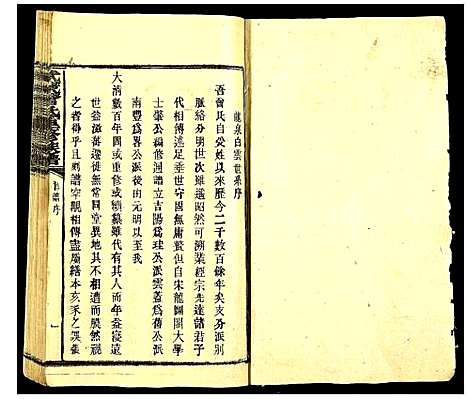 龍泉白雲世系序
吾曾氏自受姓以來歷今二千數百餘年矣支分派別
脈絡分明世次雖遙昭然可溯業經宗先達諸君子
代相傳述足垂世守固無庸贅但自宋龍圖閣大學
士肇公編修譜立吉陽為珪公派雲蓋為舊公派
南豐為畧公派由元明以至我
大清數百年間或重修或續纂雖代有其人而年益寖遠
世益滋蕃遷徙無常同堂異地其不相遭而膜然視
之者幾乎且刻譜宗親相傳盡屬繕本亥豕之誤張
舊譜序
一